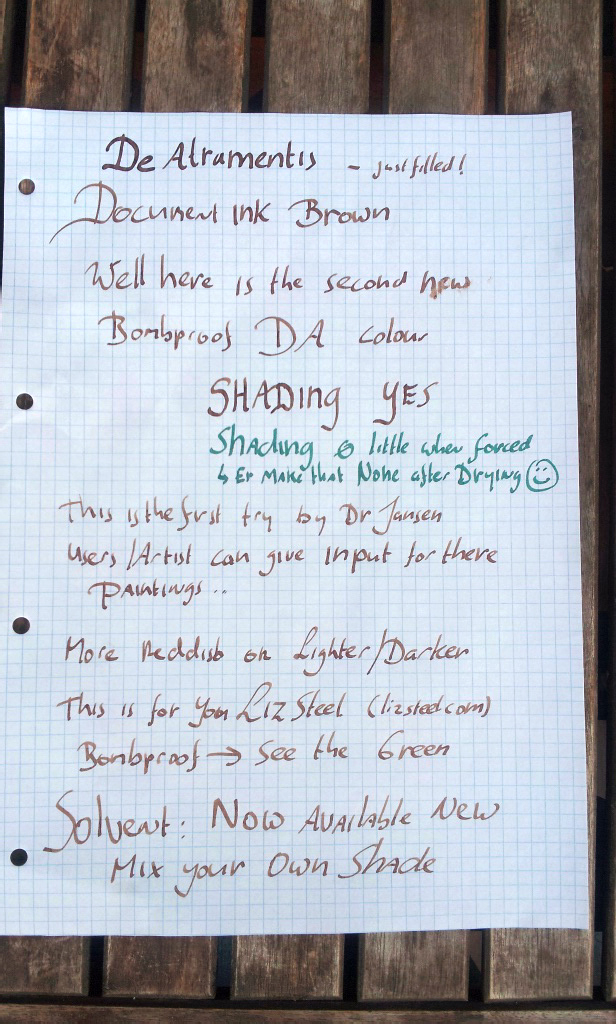 De Atramentis - just filled!
Document Ink Brown
Well here is the second new
Bombproof DA Colour
SHADING YES
Shading a little when forced
↳ Er Make that None after Drying ☺
This is the first try by Dr Jansen
Users/Artist can give input for there
Paintings..
More Reddish or Lighter/Darker
This is for You Liz Steel (lizsteel.com)
Bombproof → See the Green
Solvent: Now Available New
Mix your Own Shade